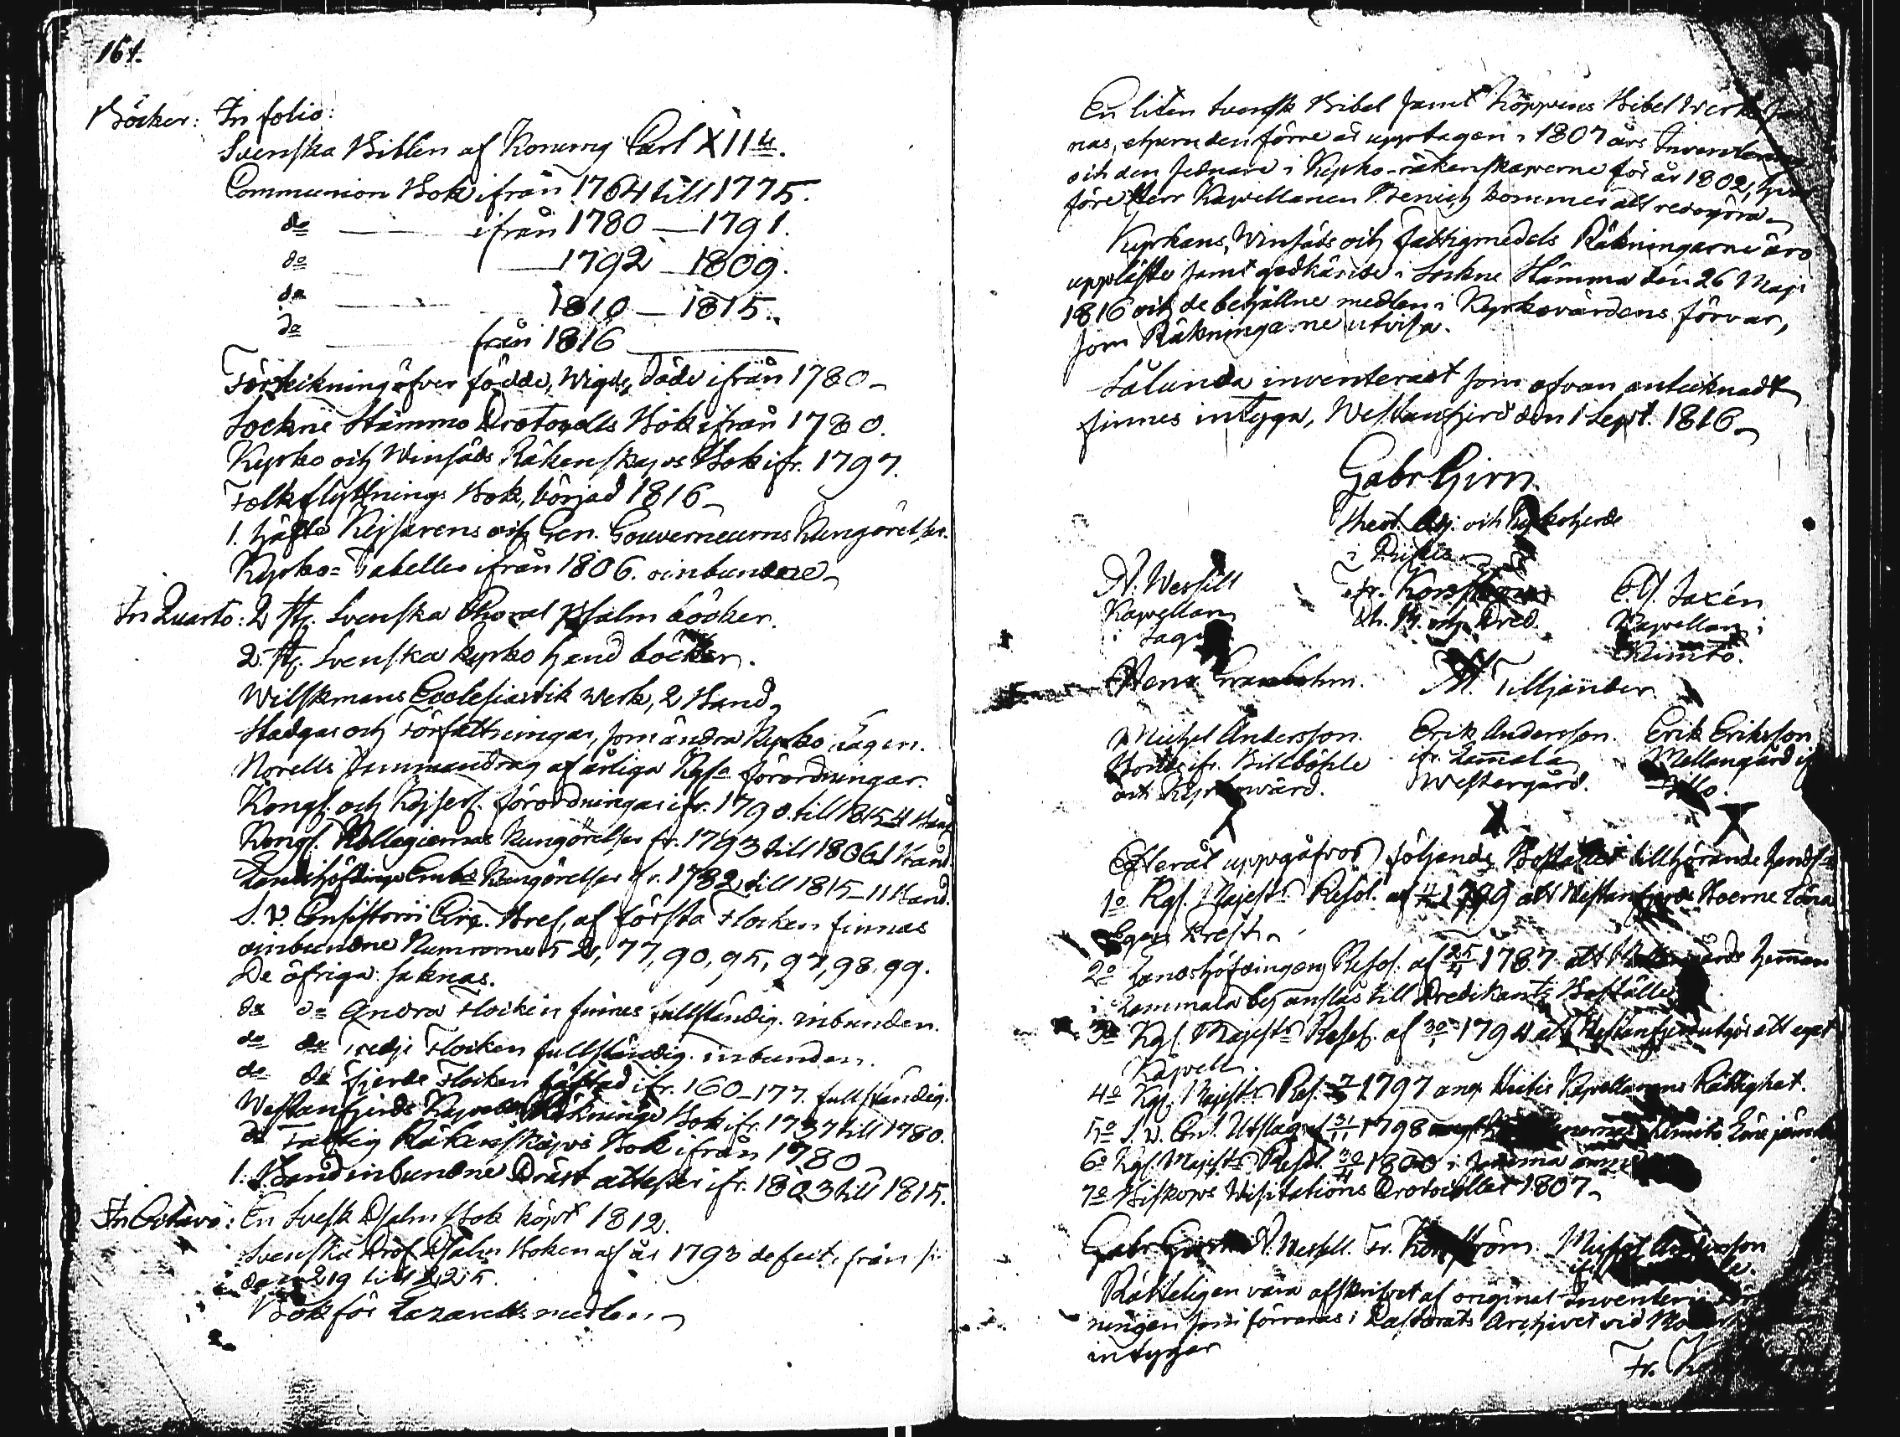 161.
Böcker: In folio:
Svenska Biblen af Konung Carl XII:s.
Communion Bok ifrån 1764 till 1775.
do ifrån 1780 — 1791.
do — 1792 — 1809.
do 1810 — 1815.
do från 1816
Förtekning öfver födde, Wigde, döde ifrån 1780
Sockne Stämmo Protocolls Bok ifrån 1780.
Kyrko och Winsäds Räkenskaps Bok ifr. 1797.
Folkflyttnings Bok, börjad 1816
1. häfte Kejsarens och Gen. Gouverneurns Kungörelser.
Kyrko-Tabeller ifrån 1806. oinbundne
In Quarto: 2 st. Svenska Choral psalm böcker.
2 st. Svenska kyrko hand böcker.
Wilskmans Ecclesiastik Werk, 2 Band
Stadgar och Författningar, som ändra Kyrko Lagen.
Norells Sammandrag af årliga Kgl. förordningar.
Kongl. och Kejserl. förordningar ifr. 1790 till 1815 4 Band
Kongl. Kollegiernas kungörelser fr. 1793 till 1806 1 Band.
Landshöfdinge Embts Kungörelser fr. 1782 till 1815 — 11 Band.
S. V. Consistorii Circ. Bref, af första Flocken finnas
oinbundne Numrorne 52, 77, 90, 95, 97, 98, 99.
De öfriga saknas.
do do Andra Flocken finnes fullständig. inbunden.
do do Tredje Flocken fullständig. inbunden.
do do fjerde Flocken häftad ifr. 160—177. fullständig.
Westanfjerds Kapells Räknings Bok ifr. 1737 till 1780.
do Fattig Räkenskaps Bok ifrån 1780
1. Band inbundne Präst attester ifr. 1803 till 1815.
In Octavo: En Svensk Psalm Bok köpt 1812.
Svenska Prof Psalm Boken af år 1793 defect, från
219 till 225.
Bok för Lazaretts medlen
En liten Svensk Bibel samt Köppens Bibel Werk
nas, ehuru den förre är upptagen i 1807 års Inventarium
och den sednare i Kyrko-räkenskaperne för år 1802,
före Herr Kapellanen Prenich kommer att redogöra.
Kyrkans, Winsäds och fattigmedels Räkningarne äro
uppläste samt godkände i Sockne Stämma den 26 Maji
1816 och de behållne medlen i Kyrkovärdens förvar,
som Räkningarne utvisa.
Sålunda inventeradt som ofvan antecknadt
finnes intyga, Westanfjerd den 1 Sept. 1816
Gabr Hirn
Theol. Adj. och Kyrkoherde
i
N. Wersill Fr. Konström C. G. Saxén
Kapellan Ph. M. och Pred. Kapellan i
i Sagu Kimito.
Hans Granbohm. M. Tilljander
Michel Andersson. Erik Andersson. Erik Eriksson
Bonde ifr. Billböhle ifr. Lammala Mellangård i
och Kyrkovärd. Westergård. Pillo.
X X X
Efteråt uppgåfvos följande Bostället tillhörande handl.
1o Kgl. Majestts Resol. af 1799 att Westanfjerds Boerne löna
Egen Prest.
2o Landshöfdingens Resol. af 1787 att hemman
i Lammala bör anslås till Predikants Boställe
3o Kgl. Majestts Resol. af 1794 att Westanfjerd utgör ett eget
Kapell.
4o Kgl. Majestts Res. 1797 ang. Kapellanens Rättighet.
5o S. V. Cons. Utslag af 1798 Kimito
6o Kgl. Majestts Resol. 1800 i samma
7o Biskops Visitations Protocollet 1807
Gabr Hirn N. Wersill. Fr. Konström Michel Andersson
Rätteligen vara afskrifvet af original Inventerings
ningen som förvaras i Pastorats Archivet vid
intygar
Fr.